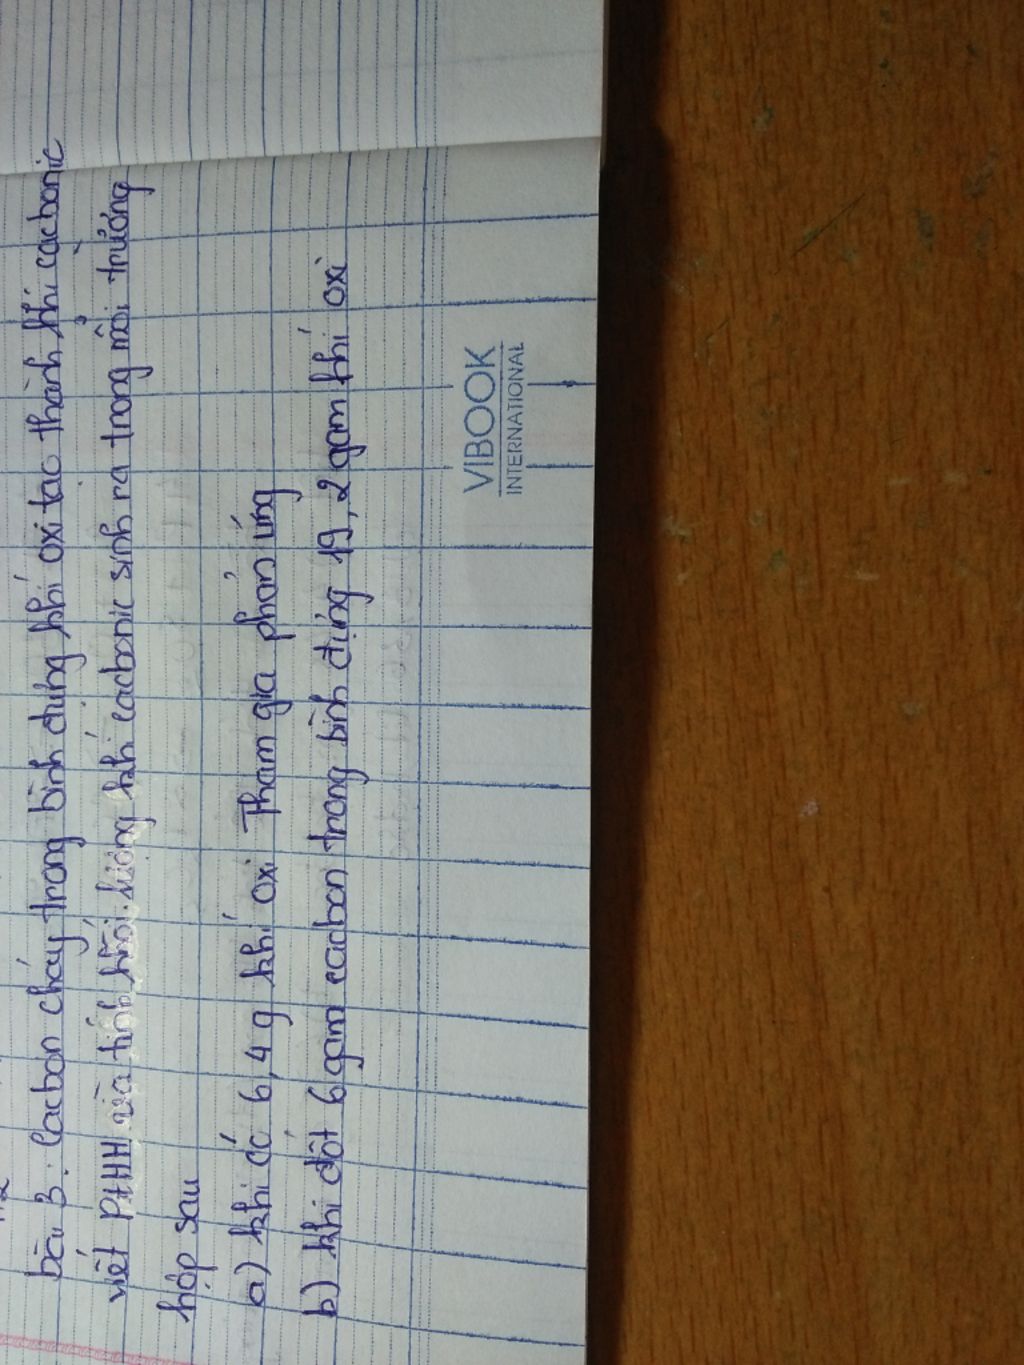 bài 3: Cacbon cháy trong bình đựng khí oxi tạo thành khí cacbonic
viết PtHH và tính khối lượng khí cacbonic sinh ra trong mỗi trường
hợp sau
a) khi có 6,4 g khí oxi Tham gia phản ứng
b) khi đốt 6 gam cacbon trong bình đựng 19,2 gam khí oxi
VIBOOK
INTERNATIONAL